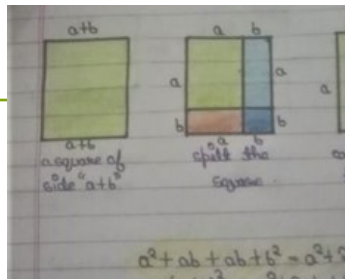 a+b
a+b
a square of
side "a+b"
a b
a
a
b
b
a b
split the
square
a
a²+ab+ab+b² = a²+2